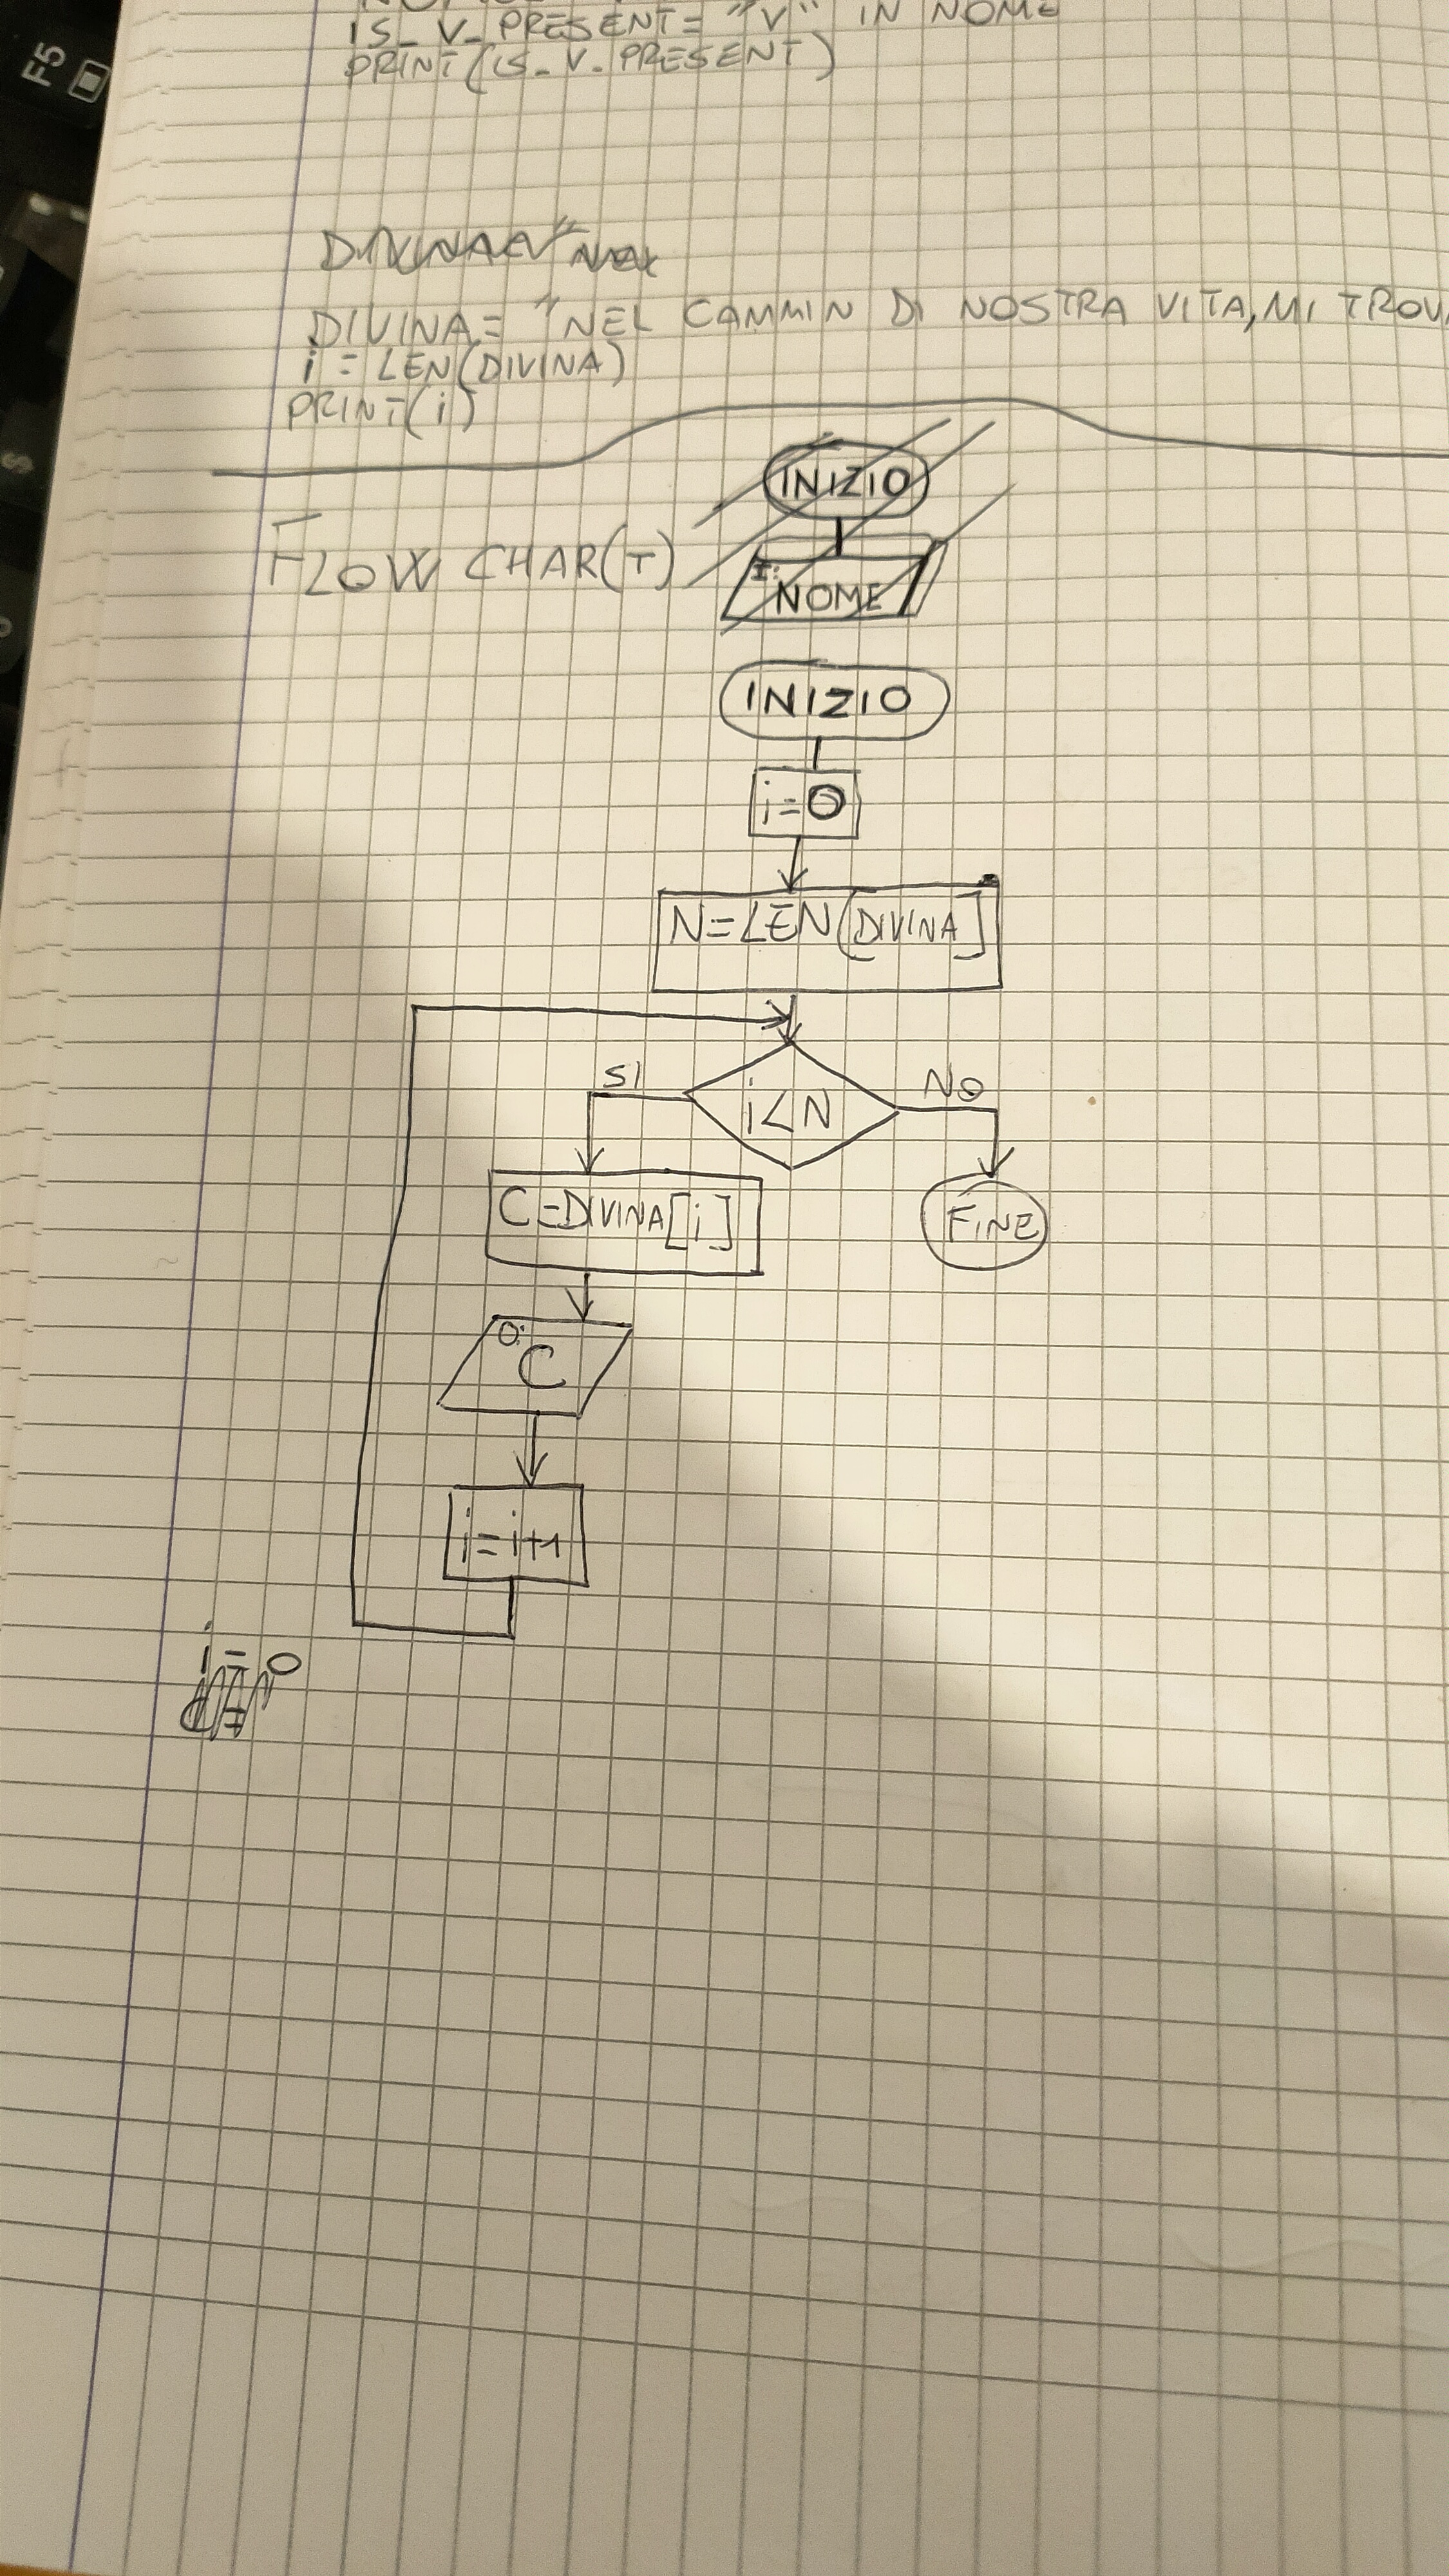 F5
IS_V_PRESENT= "V" IN NOME
PRINT(IS_V_PRESENT)
DIVINA= "NEL CAMMIN DI NOSTRA VITA, MI TROV
i = LEN(DIVINA)
PRINT(i)
FLOW CHAR(T)
INIZIO
I:
NOME
INIZIO
i=0
N=LEN(DIVINA]
i<N
SI
NO
C=DIVINA[i]
FINE
O:
C
i=i+1
i=0